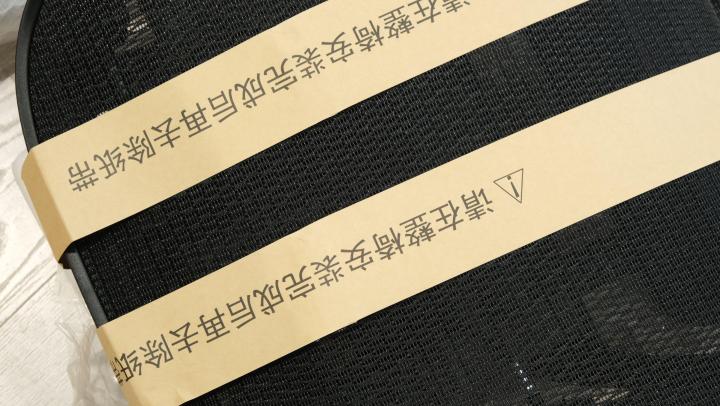 ⚠ 请在整椅安装完成后再去除纸带
请在整椅安装完成后再去除纸带